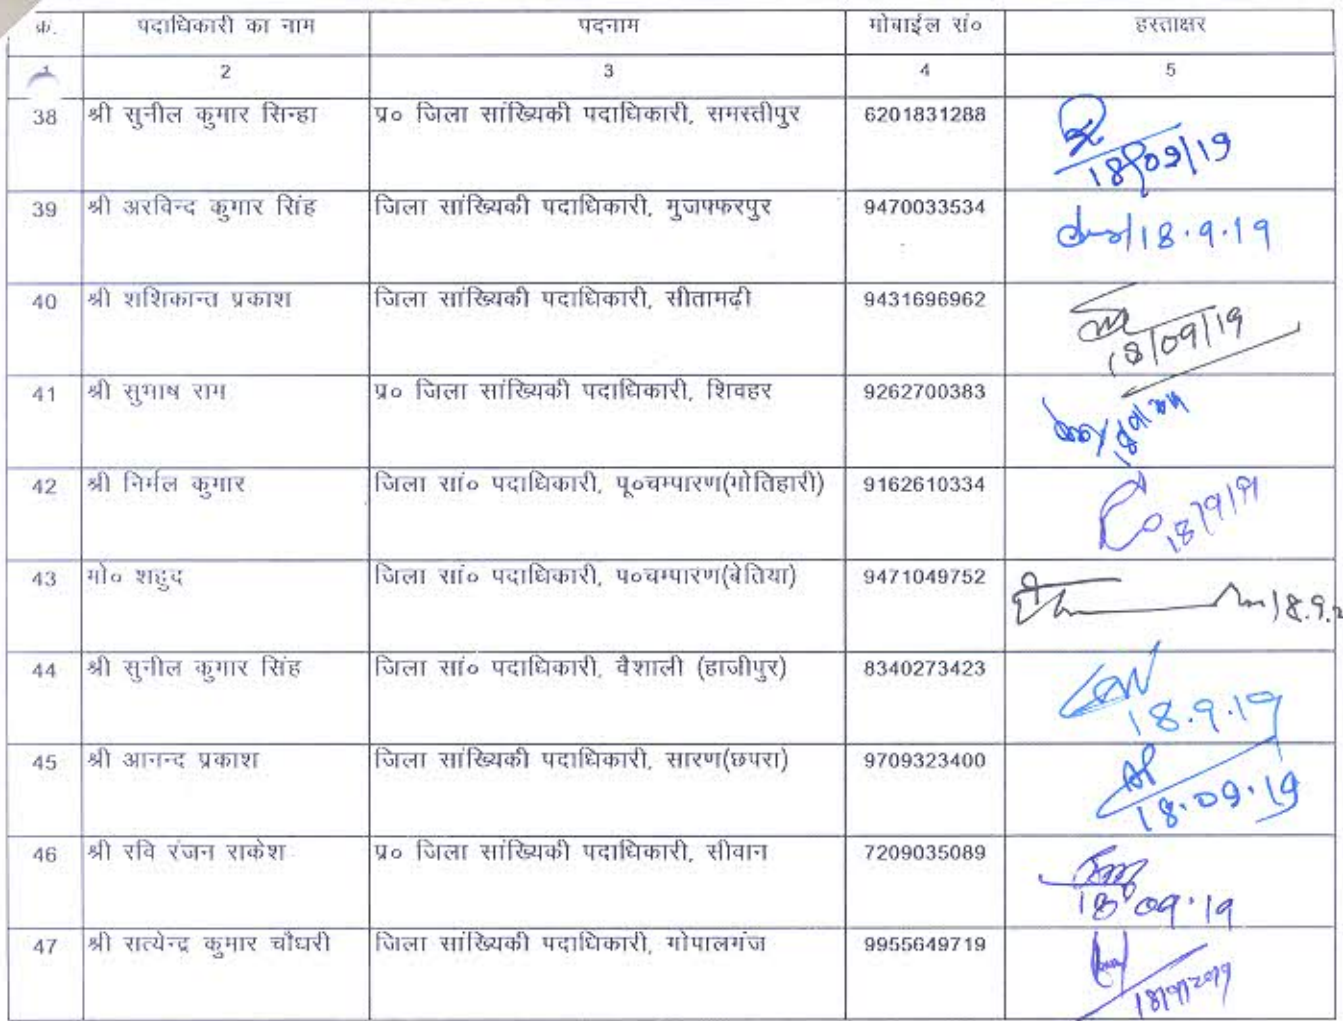 क्र. पदाधिकारी का नाम पदनाम मोबाईल सं० हस्ताक्षर
2 3 4 5
38 श्री सुनील कुमार सिन्हा प्र० जिला सांख्यिकी पदाधिकारी, समस्तीपुर 6201831288
18/09/19
39 श्री अरविन्द कुमार सिंह जिला सांख्यिकी पदाधिकारी, मुजफ्फरपुर 9470033534
18.9.19
40 श्री शशिकान्त प्रकाश जिला सांख्यिकी पदाधिकारी, सीतामढ़ी 9431696962
18/09/19
41 श्री सुभाष राम प्र० जिला सांख्यिकी पदाधिकारी, शिवहर 9262700383
42 श्री निर्मल कुमार जिला सां० पदाधिकारी, पू०चम्पारण(मोतिहारी) 9162610334
18/9/19
43 मो० शहुद जिला सां० पदाधिकारी, प०चम्पारण(बेतिया) 9471049752
18.9.
44 श्री सुनील कुमार सिंह जिला सां० पदाधिकारी, वैशाली (हाजीपुर) 8340273423
18.9.19
45 श्री आनन्द प्रकाश जिला सांख्यिकी पदाधिकारी, सारण(छपरा) 9709323400
18.09.19
46 श्री रवि रंजन राकेश प्र० जिला सांख्यिकी पदाधिकारी, सीवान 7209035089
18.09.19
47 श्री सत्येन्द्र कुमार चौधरी जिला सांख्यिकी पदाधिकारी, गोपालगंज 9955649719
18/9/2019